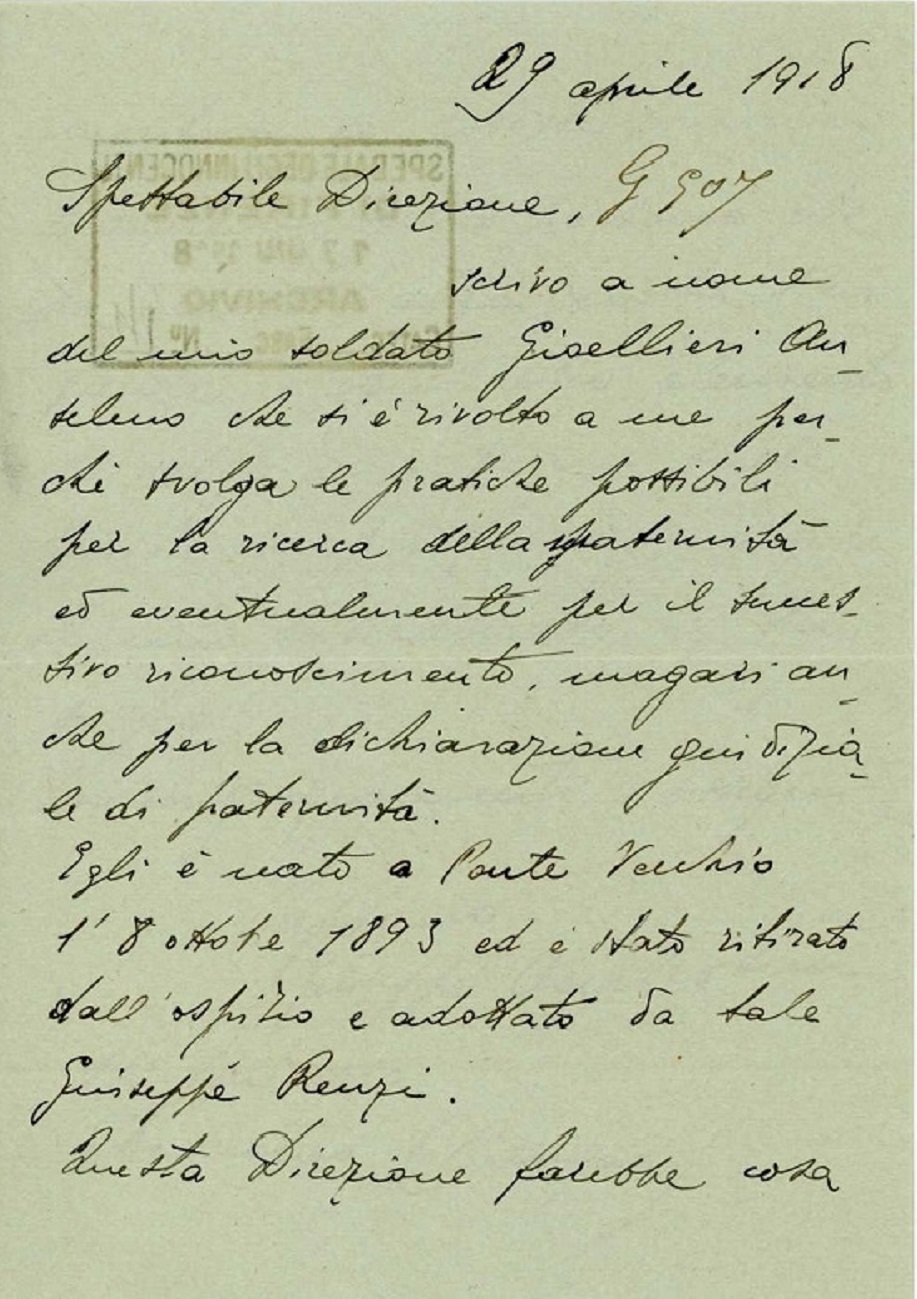 29 aprile 1918
Spettabile Direzione, G 507
scrivo a nome
del mio soldato Gioellieri An-
selmo che si è rivolto a me per-
chè svolga le pratiche possibili
per la ricerca della paternità
ed eventualmente per il succes-
sivo riconoscimento, magari an-
che per la dichiarazione giudizia-
le di paternità.
Egli è nato a Ponte Vecchio
l'8 ottobre 1893 ed è stato ritirato
dall'ospizio e adottato da tale
Giuseppe Renzi.
Questa Direzione farebbe cosa
SPEDALE DEGLI INNOCENTI
17 GIU 1918
ARCHIVIO
Nº